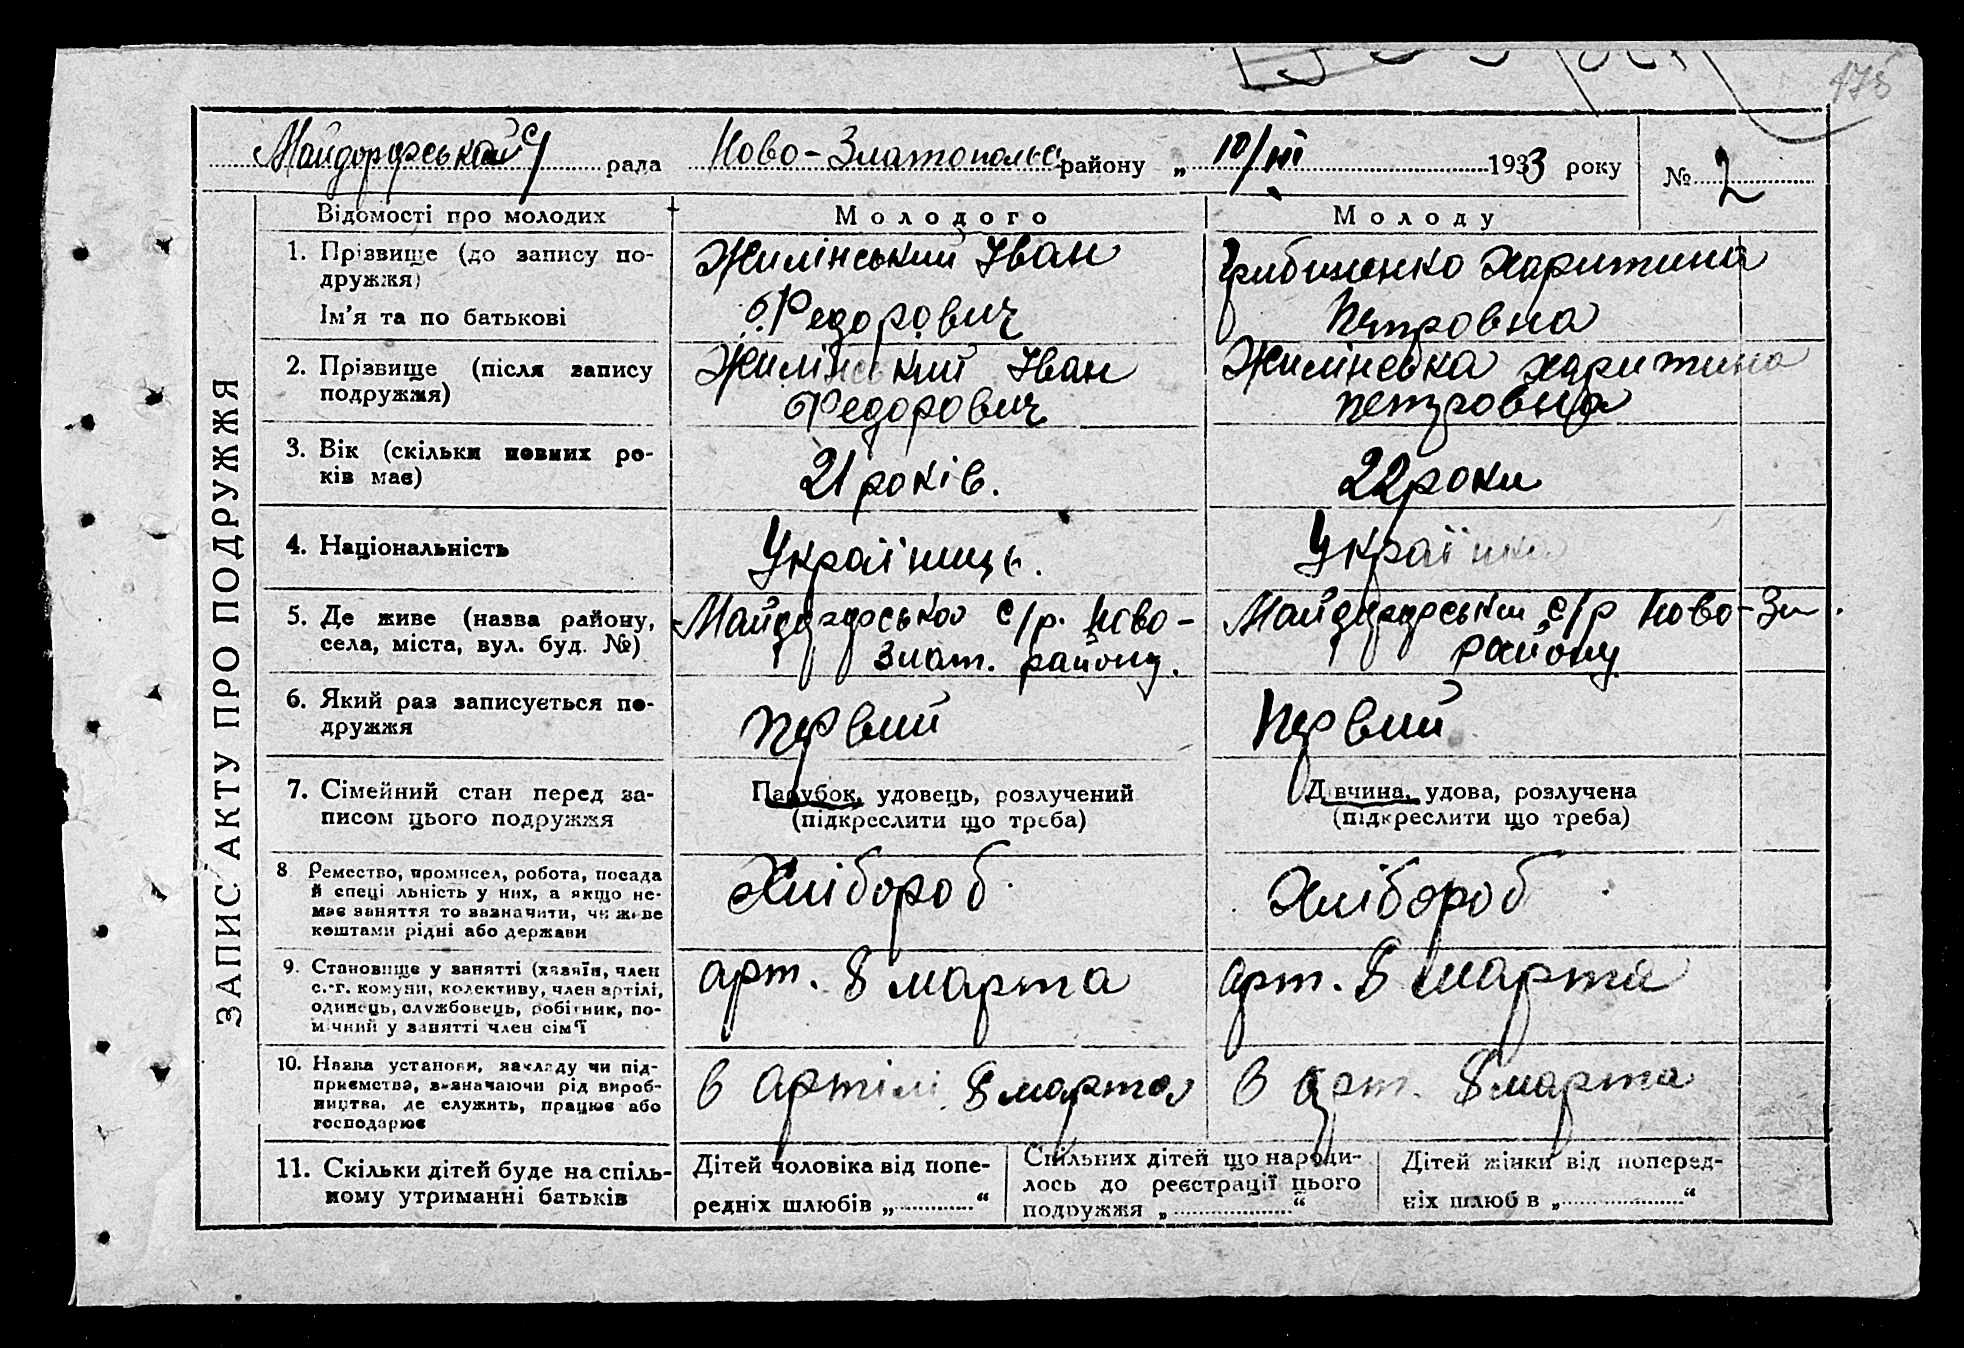 175
Майдорфська с/ рада Ново-Златопольс району „ 10/III 1933 року № 2
ЗАПИС АКТУ ПРО ПОДРУЖЖЯ
Відомості про молодих
Молодого
Молоду
1. Прізвище (до запису по-
дружжя)
Ім’я та по батькові
Жилінський Іван
Федорович
Харитина
Петровна
2. Прізвище (після запису
подружжя)
Жилінський Іван
Федорович
Жилінська Харитина
Петровна
3. Вік (скільки повних ро-
ків має)
21 років.
22 роки
4. Національність
Україниць.
Українка
5. Де живе (назва району,
села, міста, вул. буд. №)
с/р. Ново-
Злат. району.
с/р Ново-Зл.
району
6. Який раз записується по-
дружжя
Первий
Первий
7. Сімейний стан перед за-
писом цього подружжя
Парубок, удовець, розлучений
(підкреслити що треба)
Дівчина, удова, розлучена
(підкреслити що треба)
8. Ремество, промисел, робота, посада
й спеціальність у них, а якщо не-
має заняття то зазначити, чи живе
коштами рідні або держави
Хлібороб
Хлібороб
9. Становище у занятті (хазяїн, член
с.-г. комуни, колективу, член артілі,
одинець, службовець, робітник, по-
мічний у занятті член сім’ї
арт. 8 марта
арт. 8 марта
10. Назва установи, закладу чи під-
приємства, зазначаючи рід вироб-
ництва, де служить, працює або
господарює
в артілі 8 марта
в арт. 8 марта
11. Скільки дітей буде на спіль-
ному утриманні батьків
Дітей чоловіка від попе-
редніх шлюбів „ “
Спільних дітей що народи-
лось до реєстрації цього
подружжя „ “
Дітей жінки від поперед-
ніх шлюбів „ “